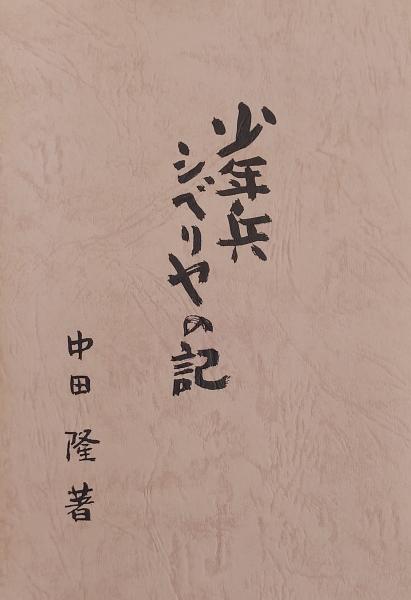 少年兵
シベリヤの記
中田隆著